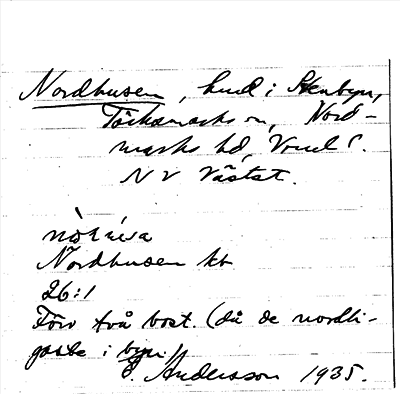 Nordhusen, hmd i Stenbyn,
Töcksmarks sn, Nord-
marks hd, Vrml l.
NV Västat.
Nordhusen kb
26:1
Förr två bost. (då de nordli-
gaste i byn)
E. Andersson 1935.